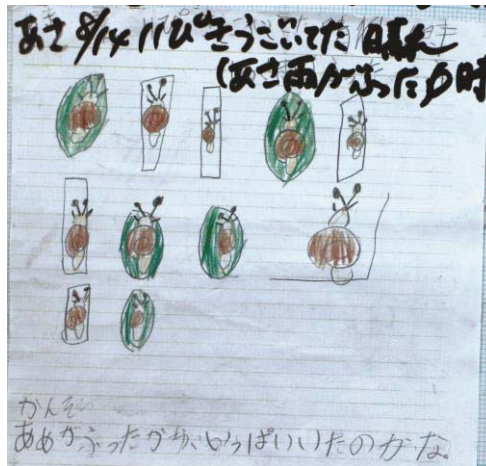 あさ 8/14 11ぴきうごいてた
(あさ雨がふった 時
かんそう
あめがふったからいっぱいいたのかな。